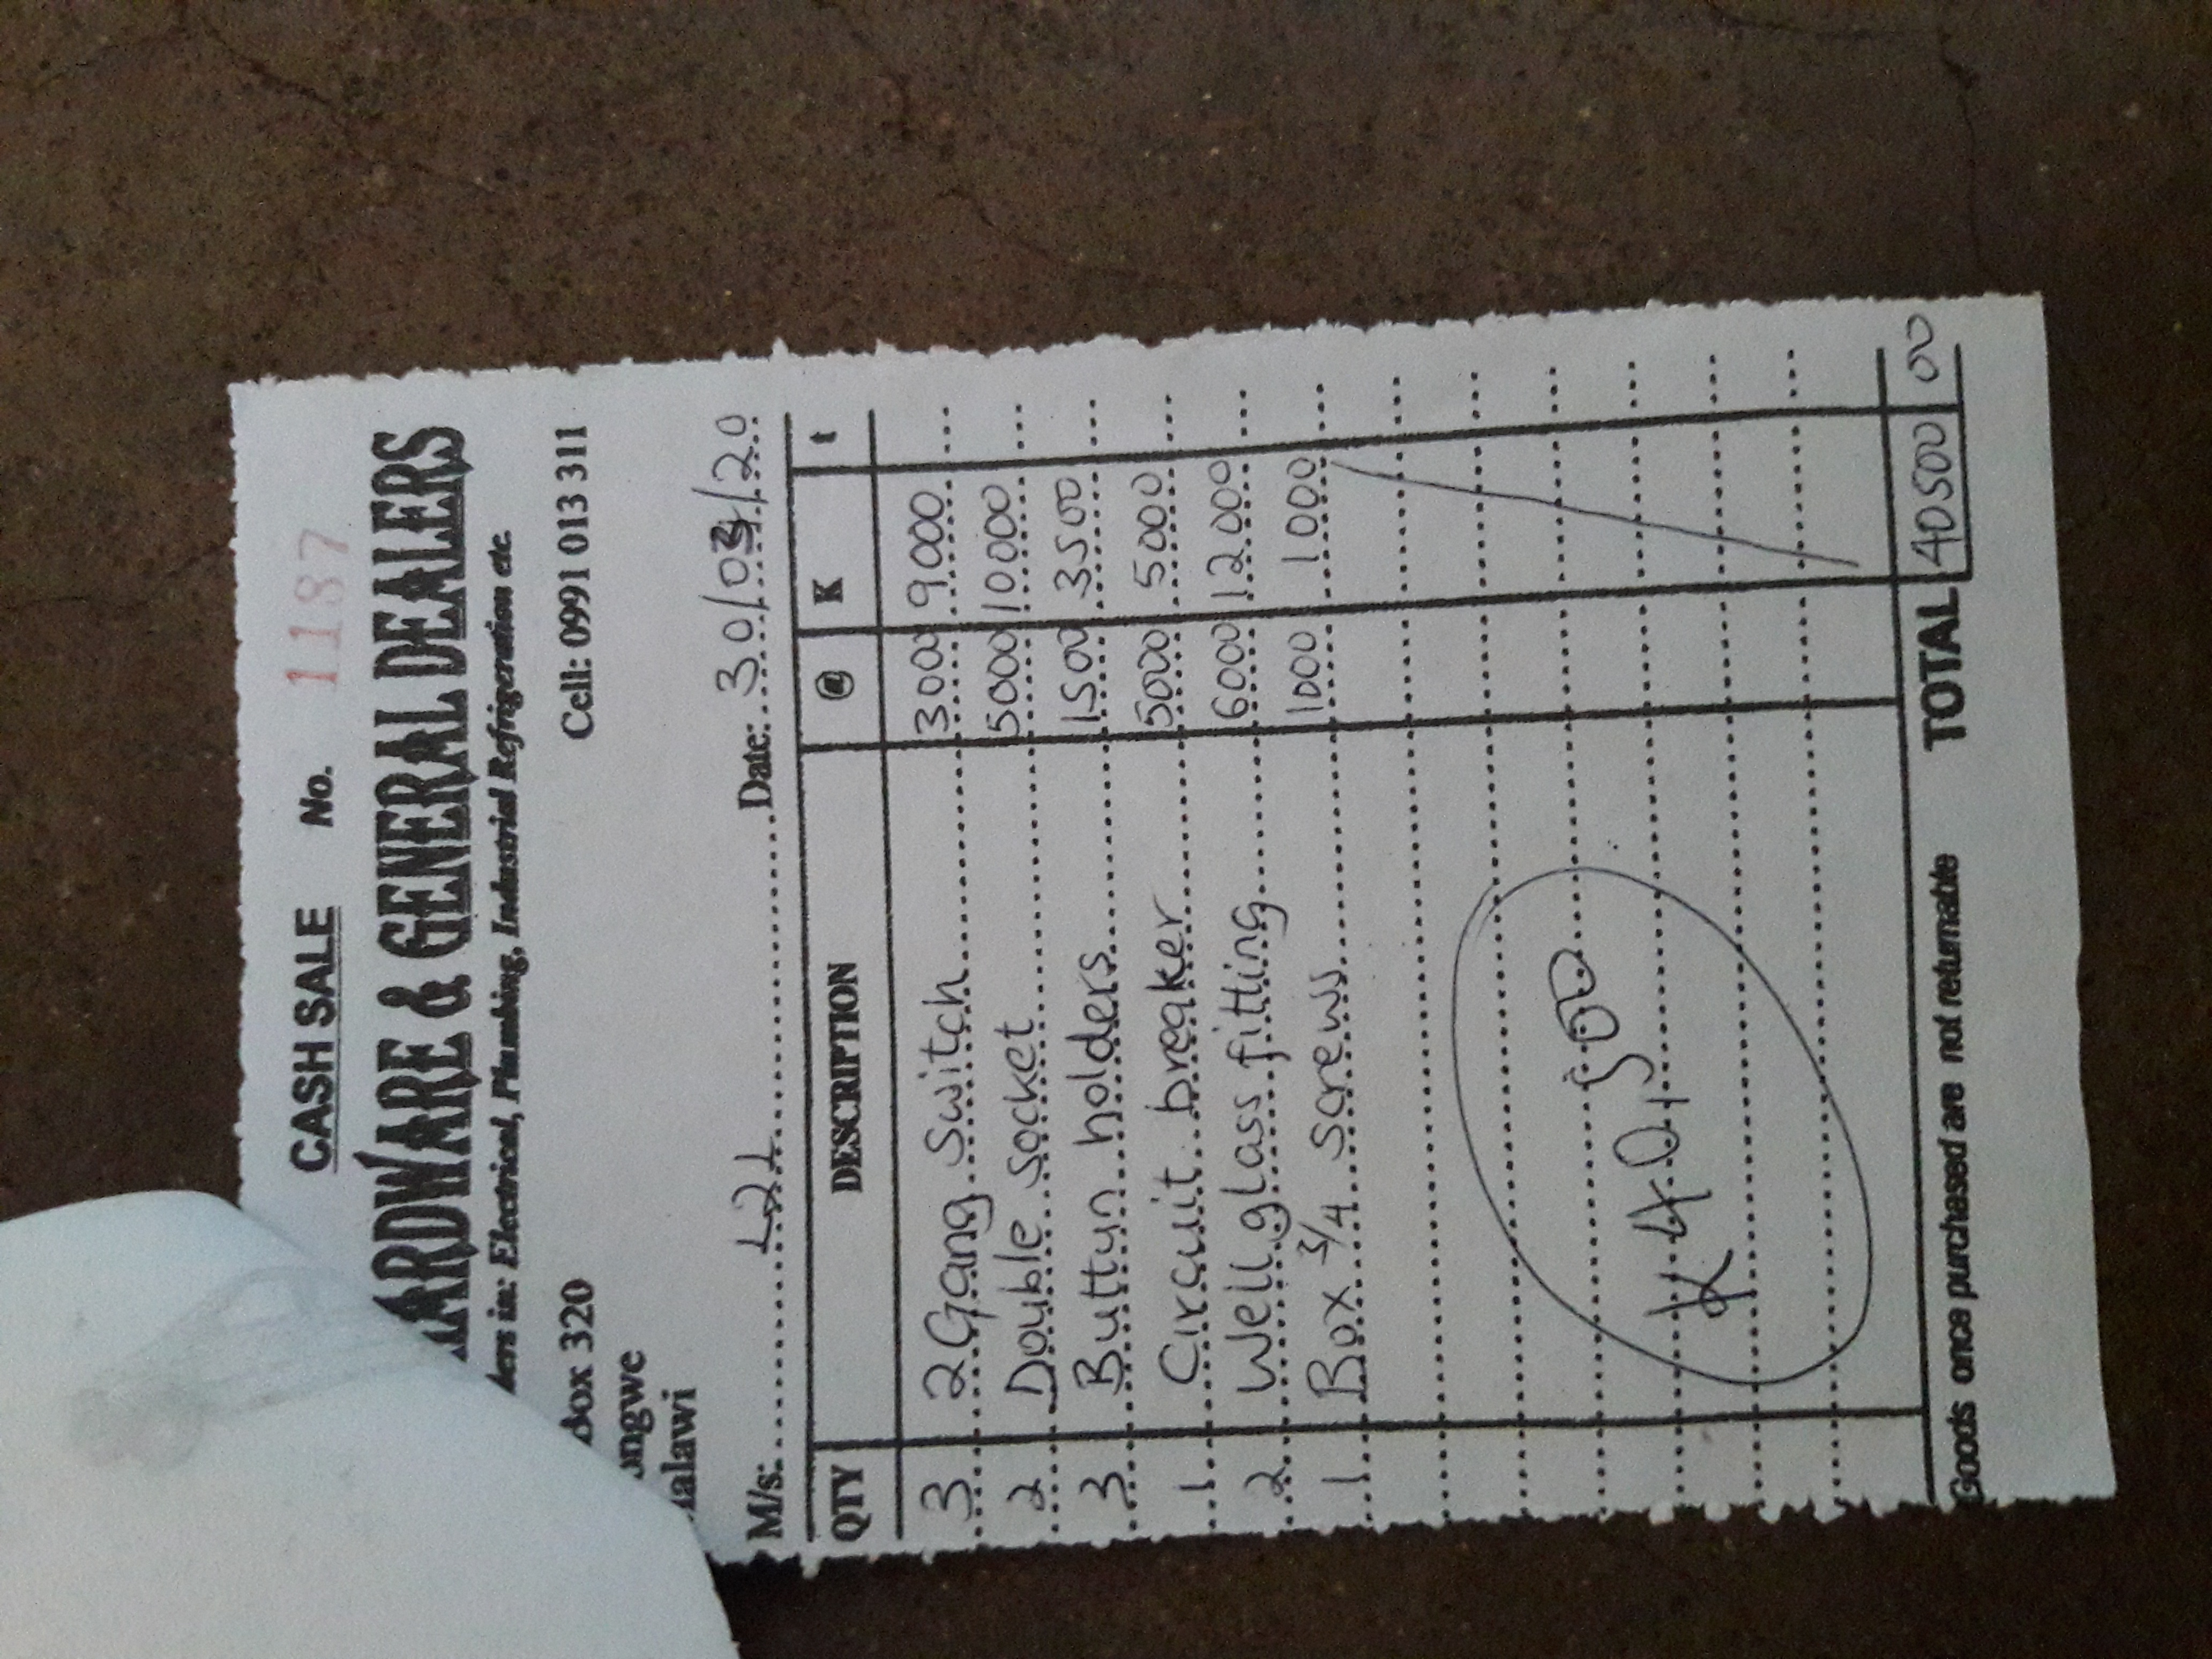 CASH SALE No. 1187
ARDWARE & GENERAL DEALERS
lers in: Electrical, Plumbing, Industrial Refrigeration etc.
Box 320 Cell: 0991 013 311
ongwe
alawi
M/s: L2L Date: 30/03/20
QTY DESCRIPTION @ K t
3 2Gang switch 3000 9000
2 Double socket 5000 10000
3 Buttun holders 1500 3500
1 Circuit breaker 5000 5000
2 Well glass fitting 6000 12000
1 Box 3/4 screws 1000 1000
K40,500
TOTAL 40500 00
Goods once purchased are not returnable